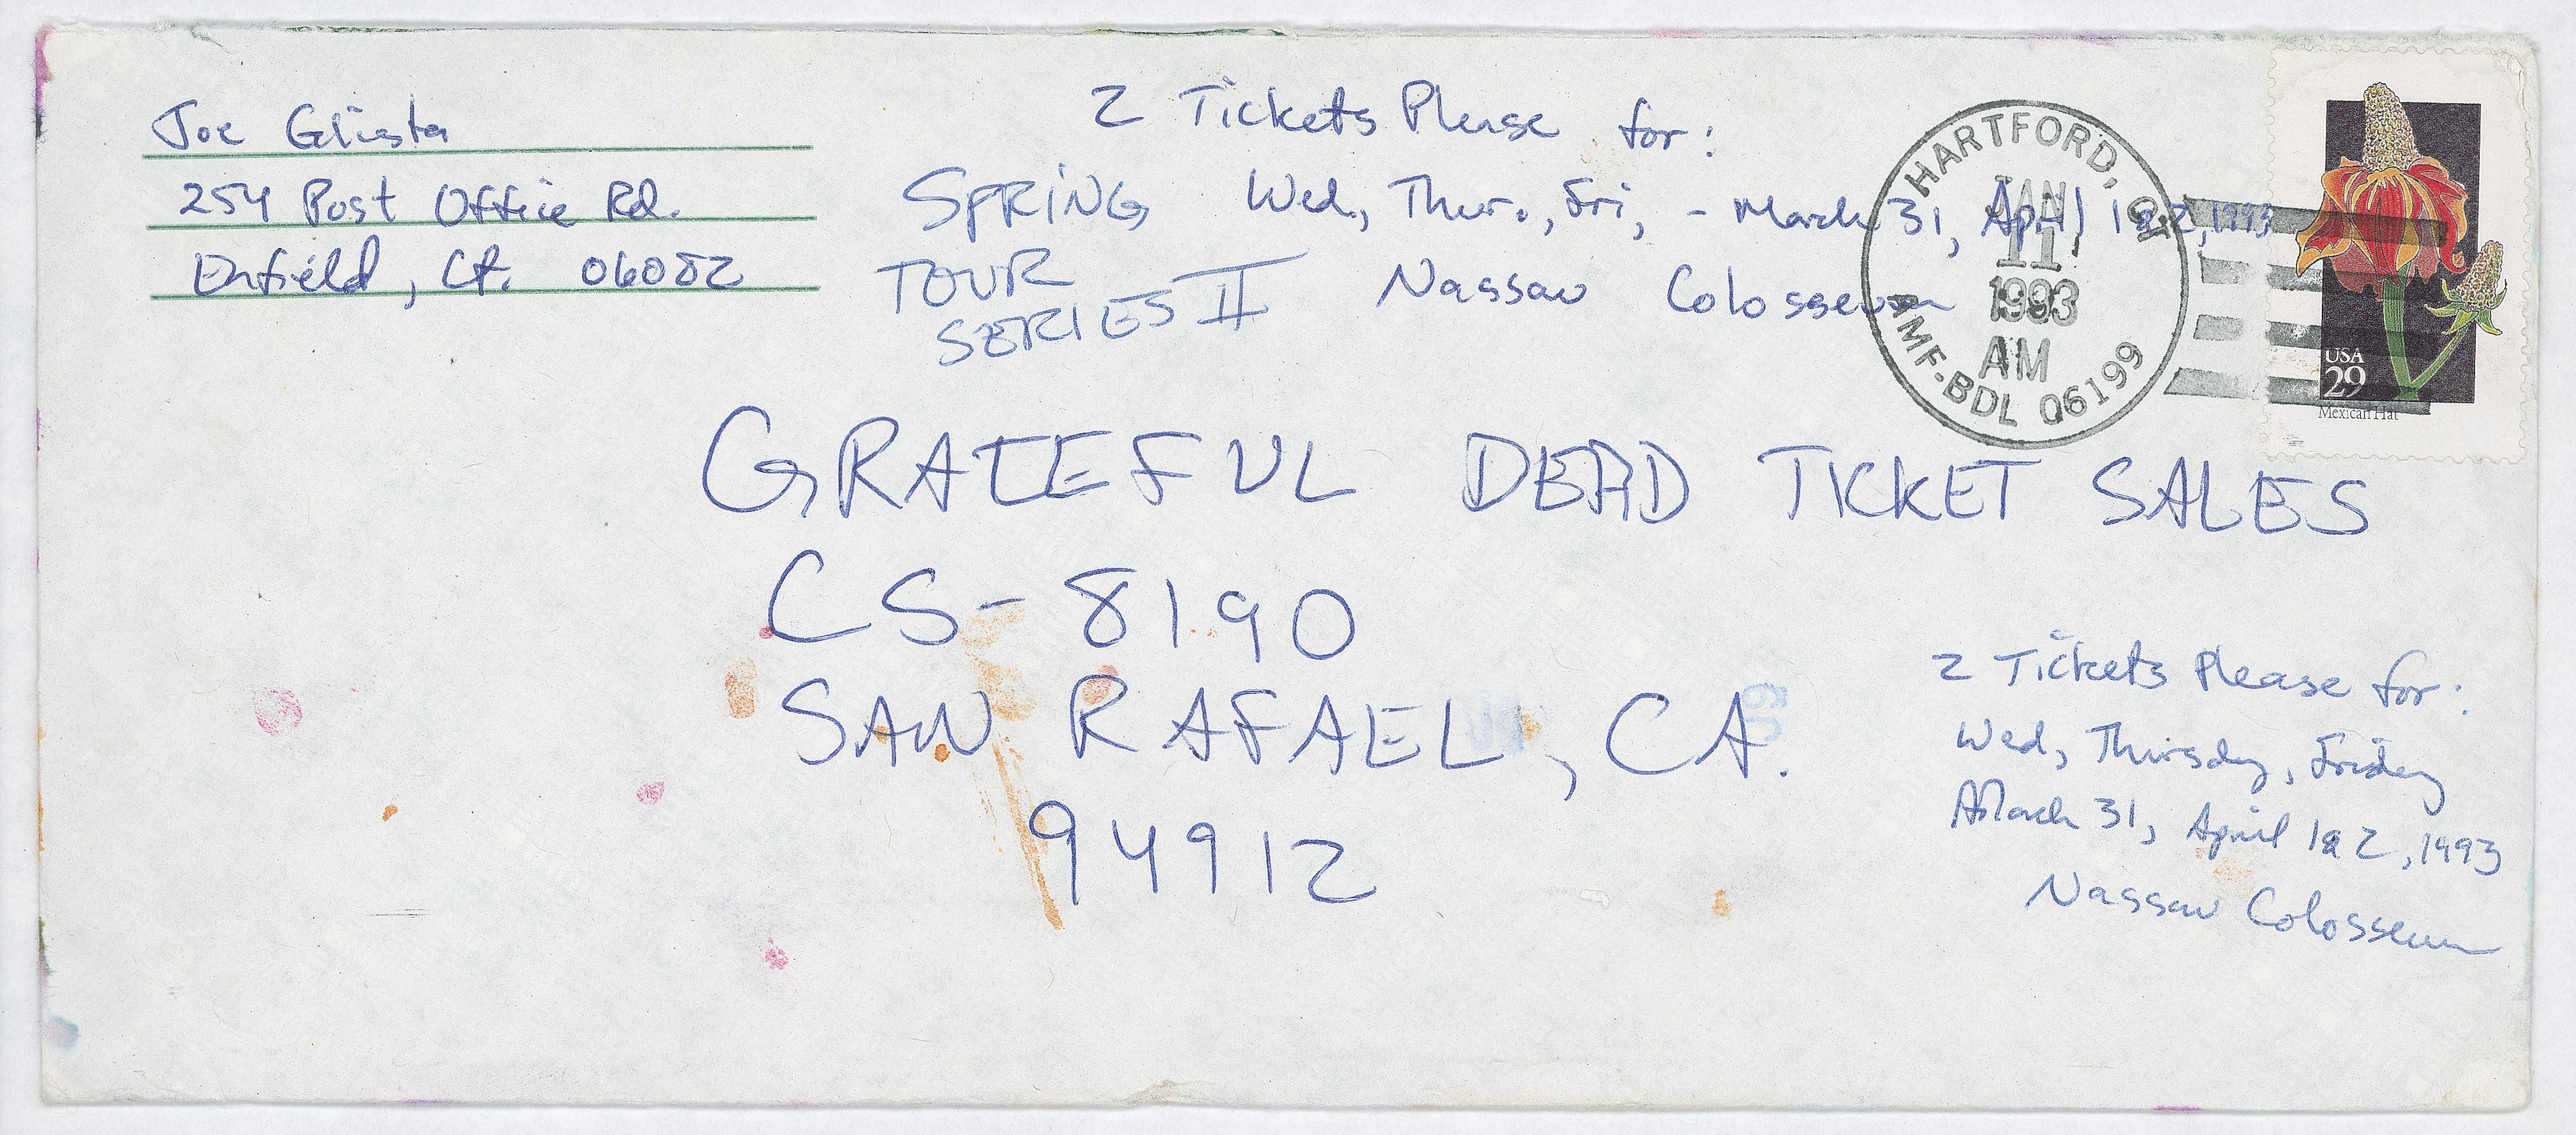 Joe Glista
254 Post Office Rd.
Enfield, Ct. 06082
2 Tickets Please for:
SPRING
TOUR
SERIES II
Wed, Thur., Fri, - March 31, April 1&2, 1993
Nassau Colosseum
HARTFORD, CT
JAN
11
1993
AM
AMF-BDL 06199
USA
29
Mexican Hat
GRATEFUL DEAD TICKET SALES
CS-8190
SAN RAFAEL, CA.
94912
2 Tickets Please for:
Wed, Thursday, Friday
March 31, April 1&2, 1993
Nassau Colosseum